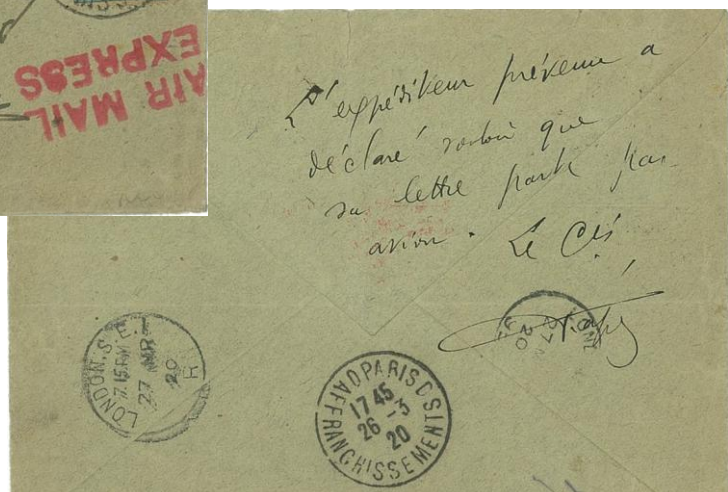 AIR MAIL
EXPRESS
L'expéditeur prévenu a
déclaré vouloir que
sa lettre parte par
avion. Le Cis
LONDON. S.
7.15 PM
27 MR
20
PARIS
17 45
26 - 3
20
AFFRANCHISSEMENTS
27
20